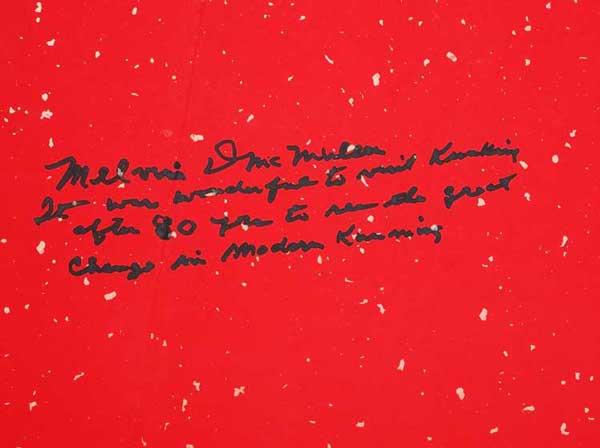 Melvin D McMullen
It was wonderful to visit Kunming
after 80 yrs to see the great
change in modern Kunming